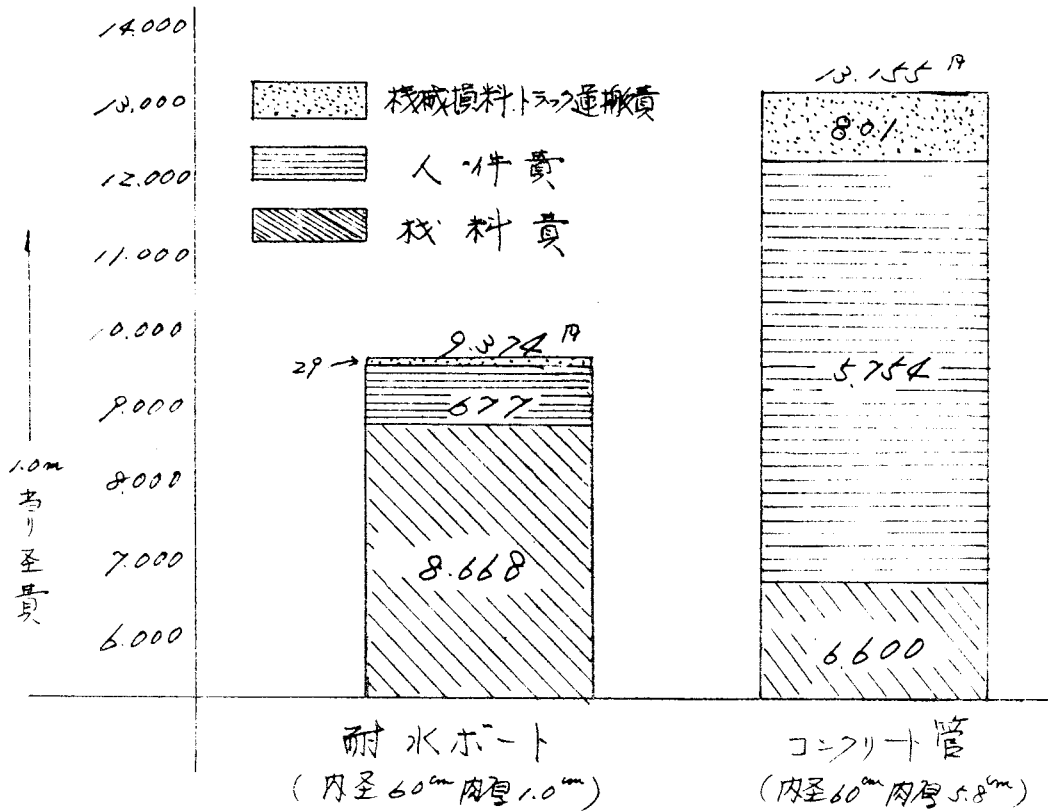 14.000
13.000
12.000
11.000
10.000
9.000
8.000
7.000
6.000
1.0m
当り圣費
機械損料.トラック運搬費
人件費
材料費
29→
9.374円
677
8.668
13.155円
801
5.754
6.600
耐水ボート
(内圣60cm肉厚1.0cm)
コンクリート管
(内圣60cm肉厚5.8cm)